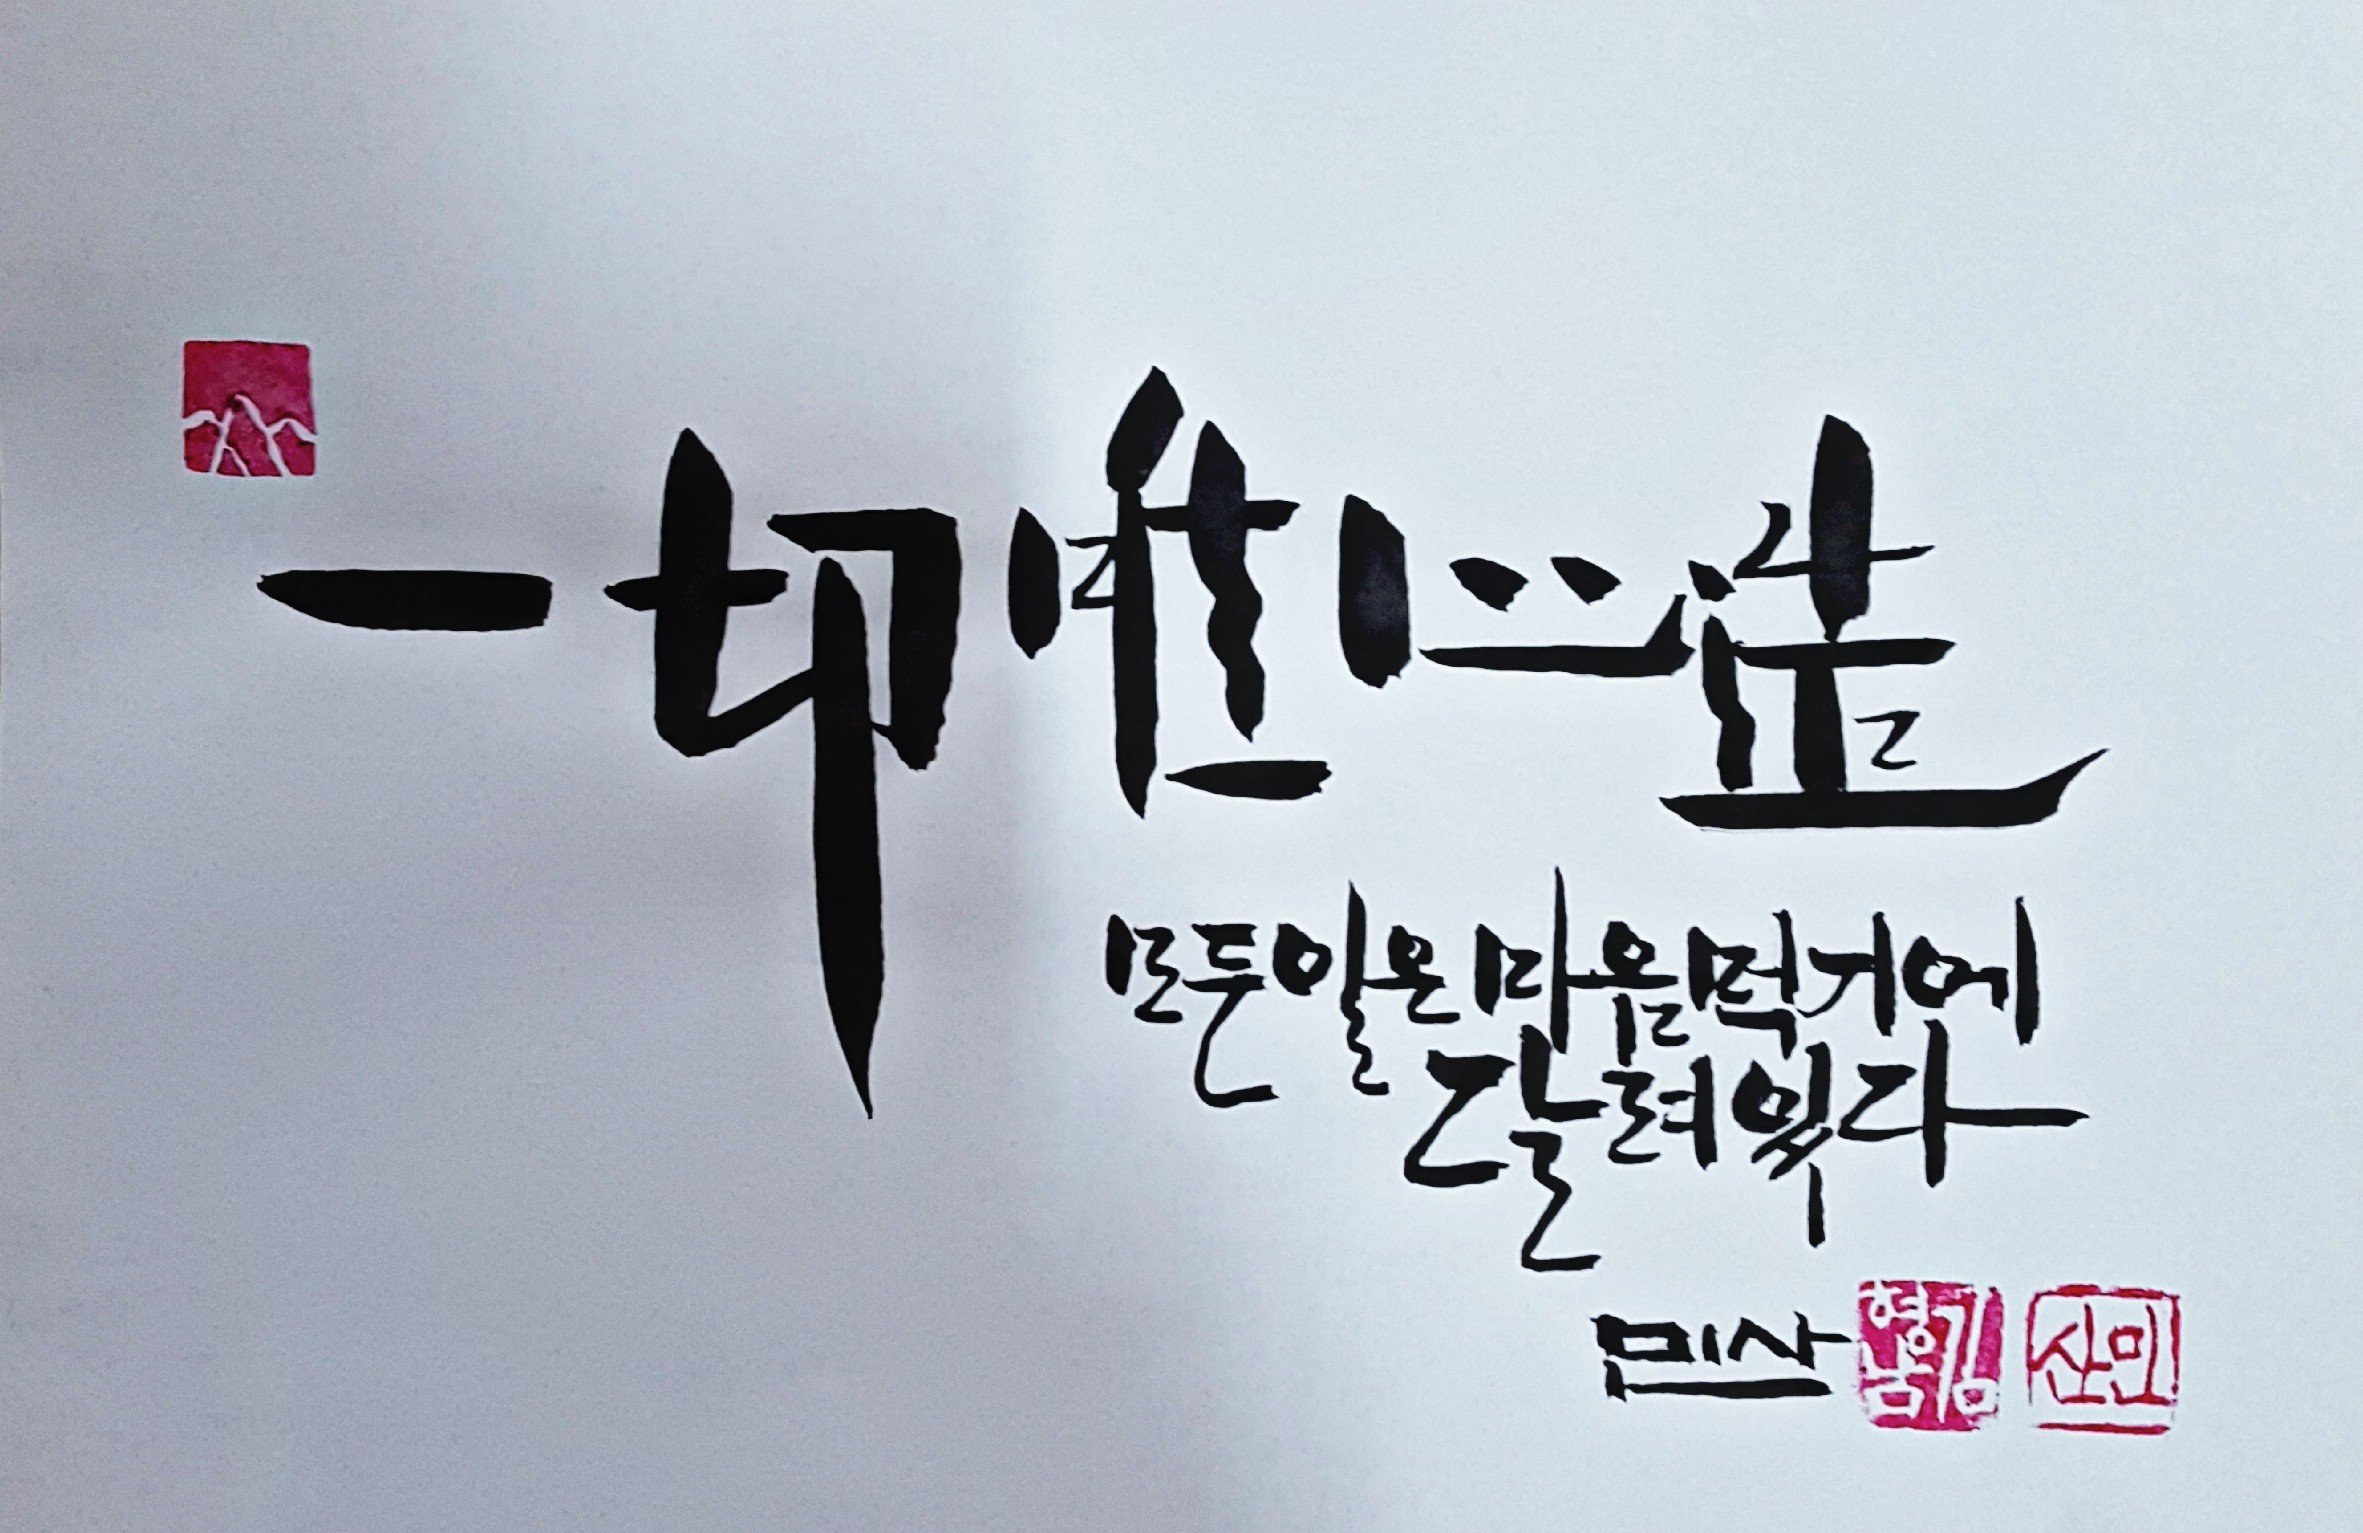 一切唯心造
모든 일은 마음먹기에
달려있다
민산 김형남 민산